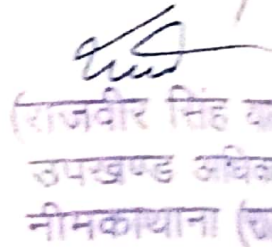 (राजवीर सिंह या
उपखण्ड अधिका
नीमकाथाना (